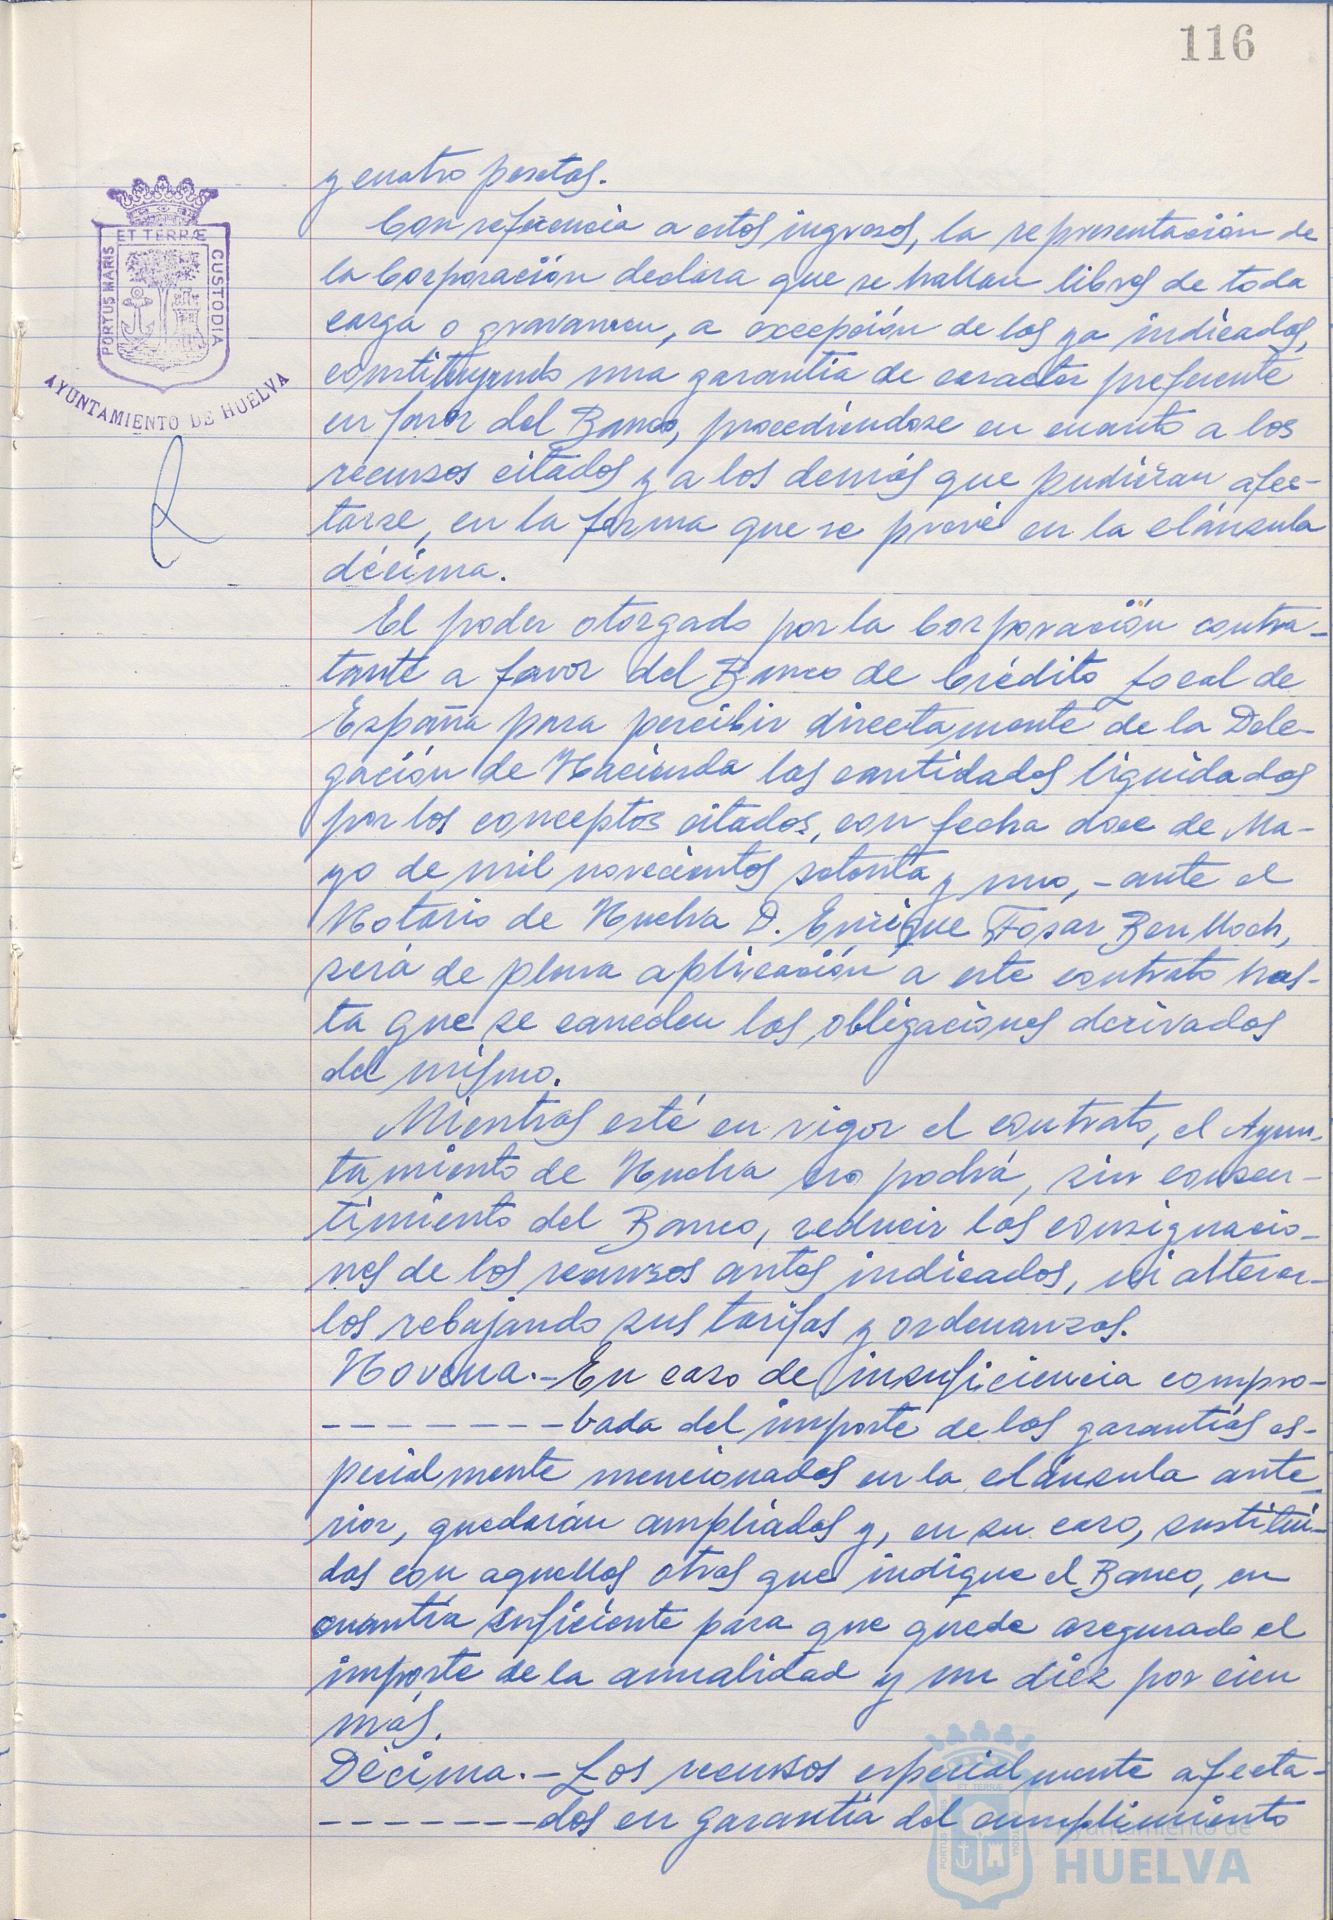 116
ET TERRÆ
PORTUS MARIS
CUSTODIA
AYUNTAMIENTO DE HUELVA
y cuatro pesetas.
Con referencia a estos ingresos, la representación de
la Corporación declara que se hallan libres de toda
carga o gravamen, a excepción de los ya indicados,
constituyendo una garantía de caracter preferente
en favor del Banco, procediéndose en cuanto a los
recursos citados y a los demás que pudieran afec-
tarse, en la forma que se prevé en la cláusula
décima.
El poder otorgado por la Corporación contra-
tante a favor del Banco de Crédito Local de
España para percibir directamente de la Dele-
gación de Hacienda las cantidades liquidadas
por los conceptos citados, con fecha doce de Ma-
yo de mil novecientos setenta y uno, -ante el
Notario de Huelva D. Enrique Fosar Benlloch,
será de plena aplicación a este contrato has-
ta que se cancelen las obligaciones derivadas
del mismo.
Mientras esté en vigor el contrato, el Ayun-
tamiento de Huelva no podrá, sin consen-
timiento del Banco, reducir las consignacio-
nes de los recursos antes indicados, ni alterar-
los rebajando sus tarifas y ordenanzas.
Novena.- En caso de insuficiencia compro-
- - - - - - - - bada del importe de las garantías es-
pecialmente mencionadas en la cláusula ante-
rior, quedarán ampliadas y, en su caso, sustitui-
das con aquellas otras que indique el Banco, en
cuantía suficiente para que quede asegurado el
importe de la anualidad y un diez por cien
más.
Décima.- Los recursos especialmente afecta-
- - - - - - - dos en garantía del cumplimiento
Ayuntamiento de
HUELVA